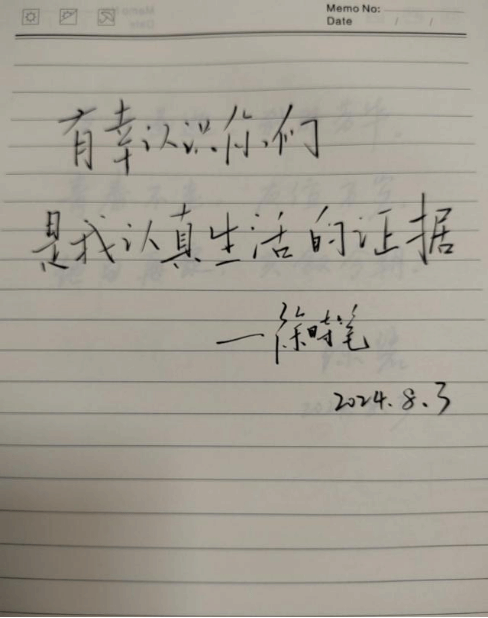 Memo No:
Date / /
有幸认识你们
是我认真生活的证据
—徐时笔
2024.8.3